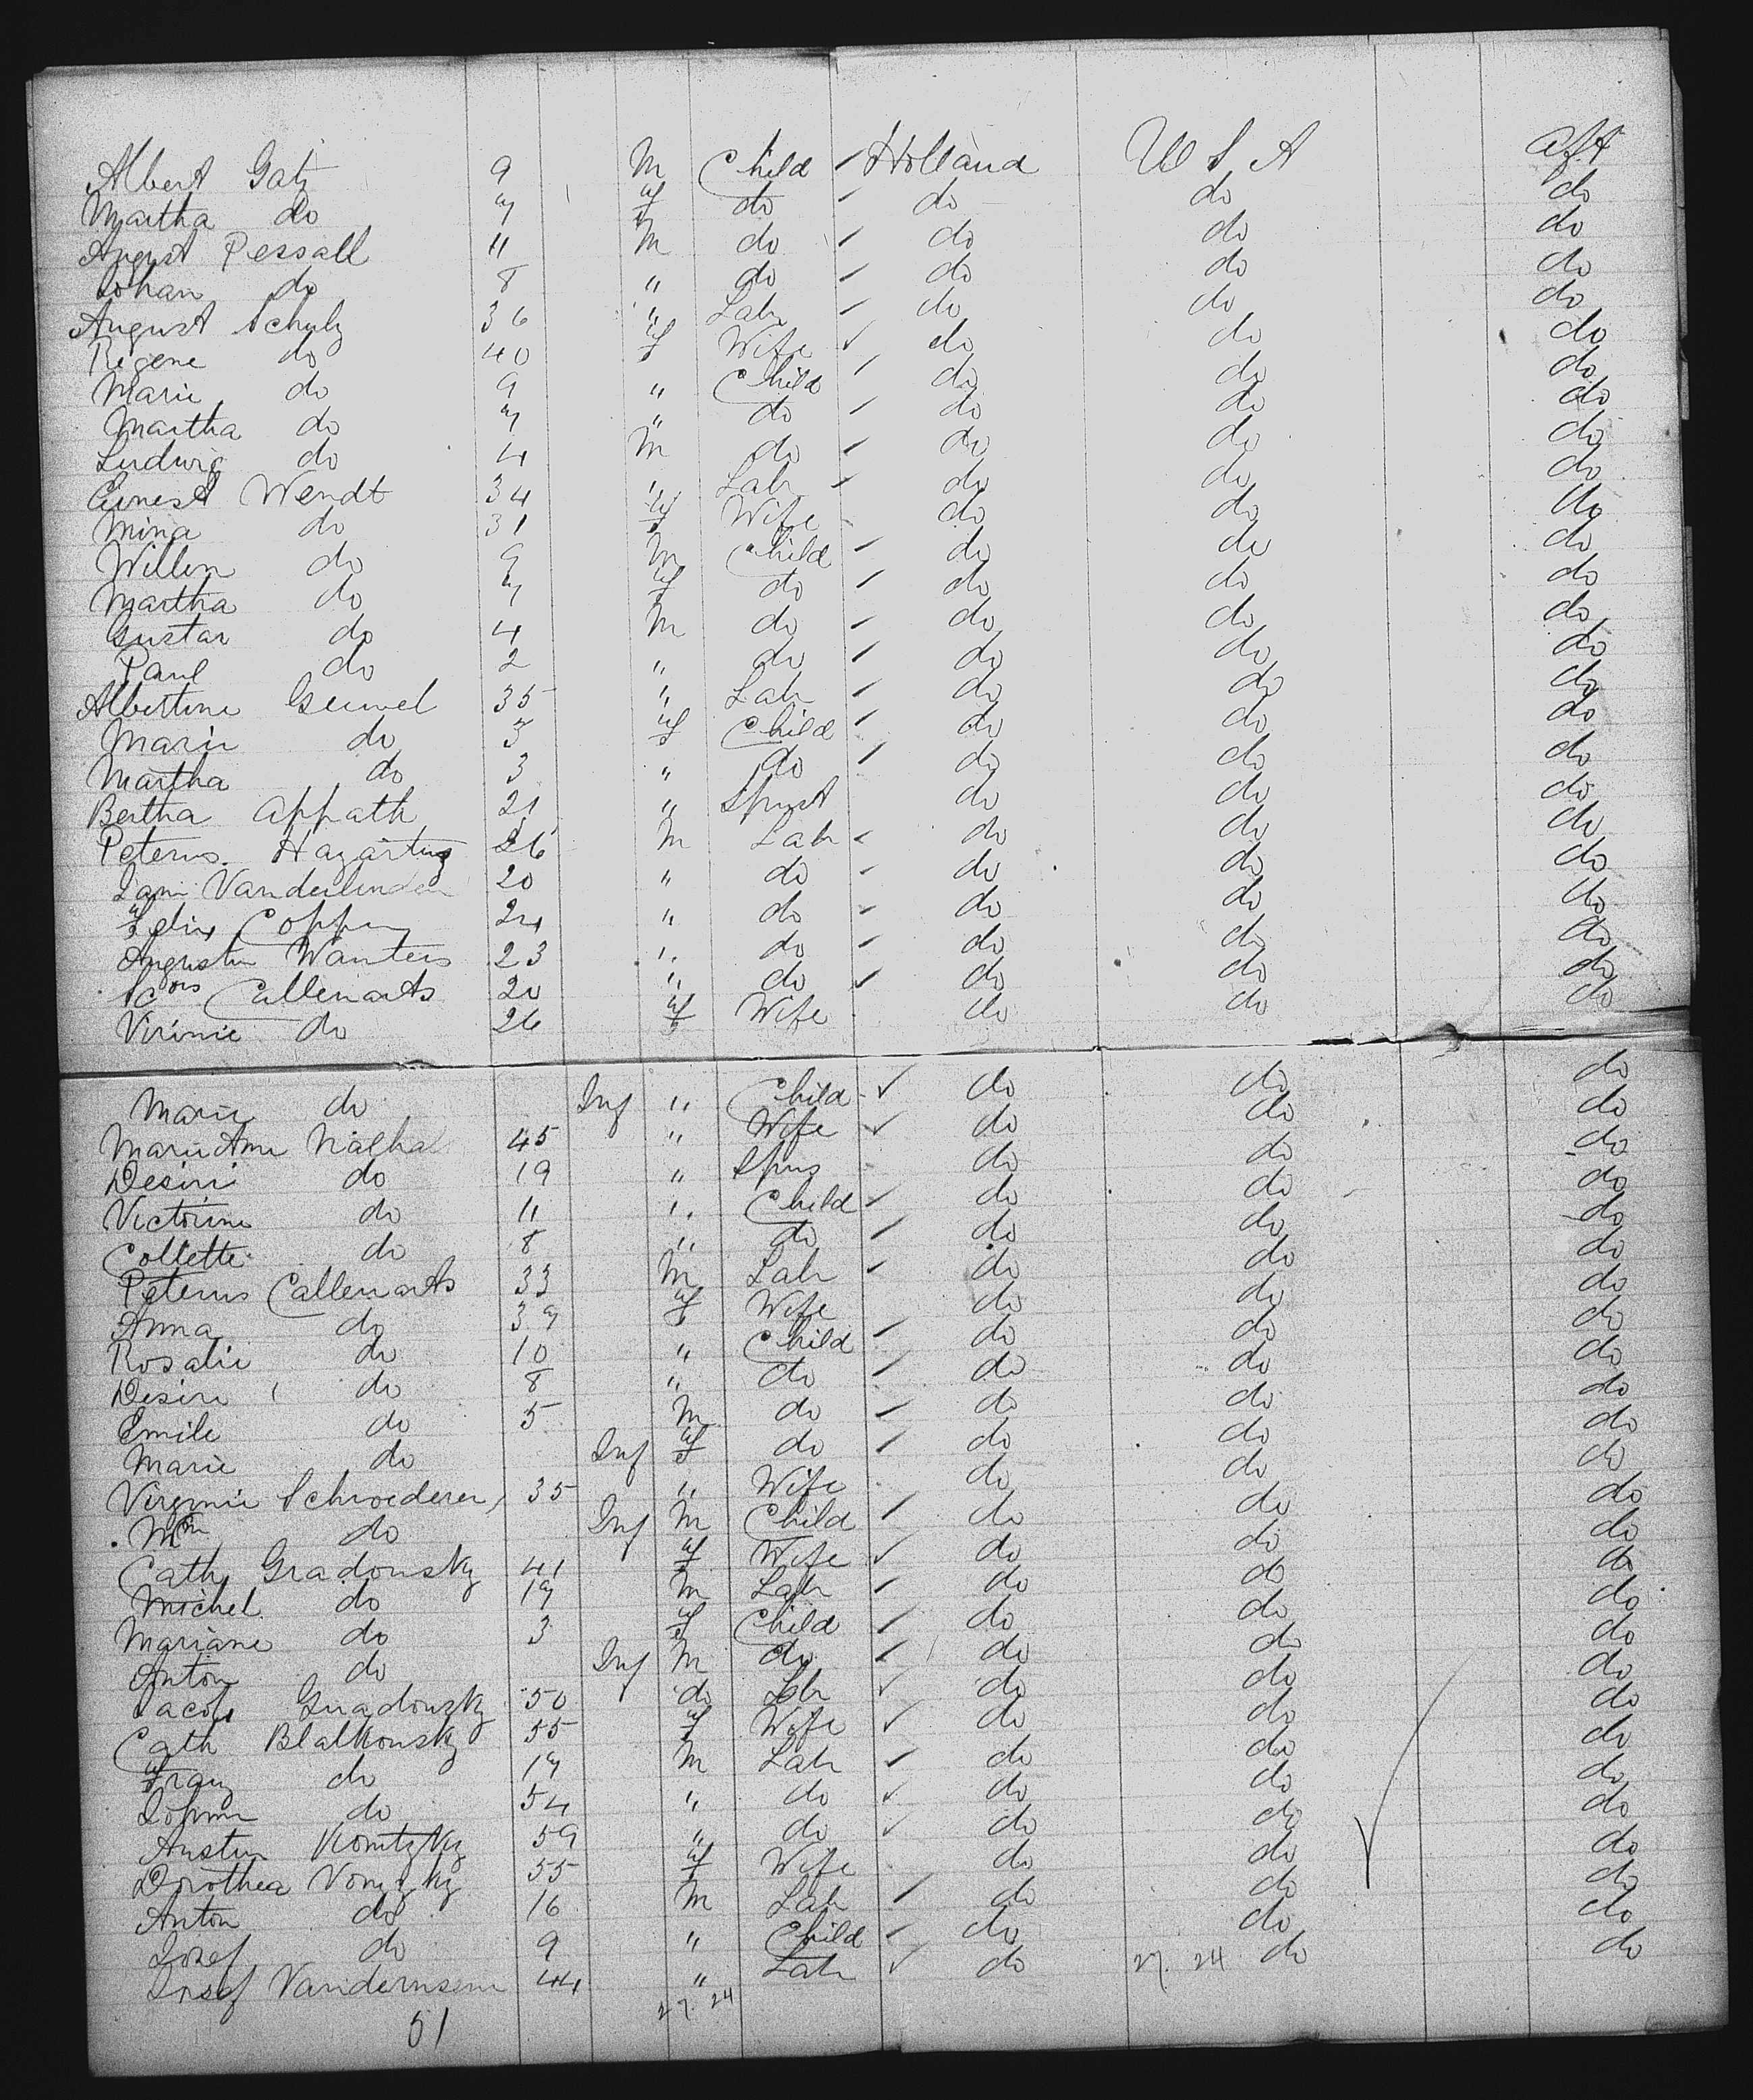 Albert Gatz 9 M Child Holland U S A aft
Martha do 7 F do do do do
August Pessall 11 M do do do do
Johan do 8 " do do do do
August Schulz 36 " Lab do do do
Regene do 40 F Wife do do do
Marie do 9 " Child do do do
Martha do 7 " do do do do
Ludwig do 4 M do do do do
Ernest Wendt 34 " Lab do do do
Mina do 31 F Wife do do do
Willem do 9 M Child do do do
Martha do 7 F do do do do
Gustav do 4 M do do do do
Paul do 2 " do do do do
Albertine 35 " Lab do do do
Marie do 3 F Child do do do
Martha do 3 " do do do do
Bertha Appath 21 " Spinst do do do
Peterus Hazartus 26 M Lab do do do
Jani Vanderlinden 20 " do do do do
Felix Coppen 24 " do do do do
Augustin Wauters 23 " do do do do
Callenarts 20 " do do do do
Virinie do 26 F Wife do do do
Marie do Inf " Child do do do
Marie Ann 45 " Wife do do do
Desiri do 19 " Spins do do do
Victorine do 11 " Child do do do
Collette do 8 " do do do do
Peterus Callenarts 33 M Lab do do do
Anna do 37 F Wife do do do
Rosalie do 10 " Child do do do
Desire do 8 " do do do do
Emile do 5 M do do do do
Marie do Inf F do do do do
Virginie Schroederer 35 " Wife do do do
Wm do Inf M Child do do do
Cath Gradousky 41 F Wife do do do
Michel do 17 M Lab do do do
Mariane do 3 F Child do do do
Anton do Inf M do do do do
Jacob Gradousky 50 do Lab do do do
Cath Blalkousky 55 F Wife do do do
Franz do 17 M Lab do do do
do 54 " do do do do
Austin 59 " do do do do
Dorothea 55 F Wife do do do
Anton do 16 M Lab do do do
Josef do 9 " Child do do do
Josef 44 " Lab do 27. 24 do do
51 27. 24